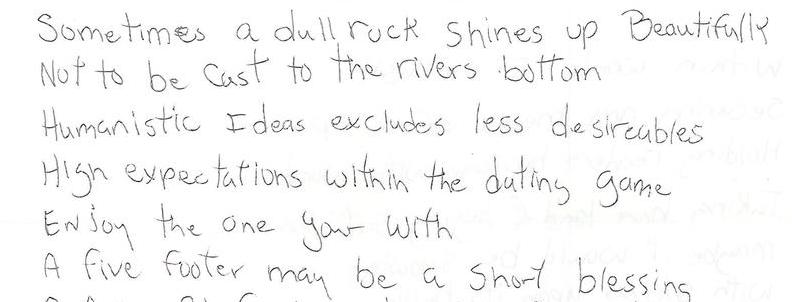 Sometimes a dull rock shines up Beautifully
Not to be Cast to the rivers bottom
Humanistic Ideas excludes less desireables
High expectations within the dating game
Enjoy the one your with
A five footer may be a short blessing